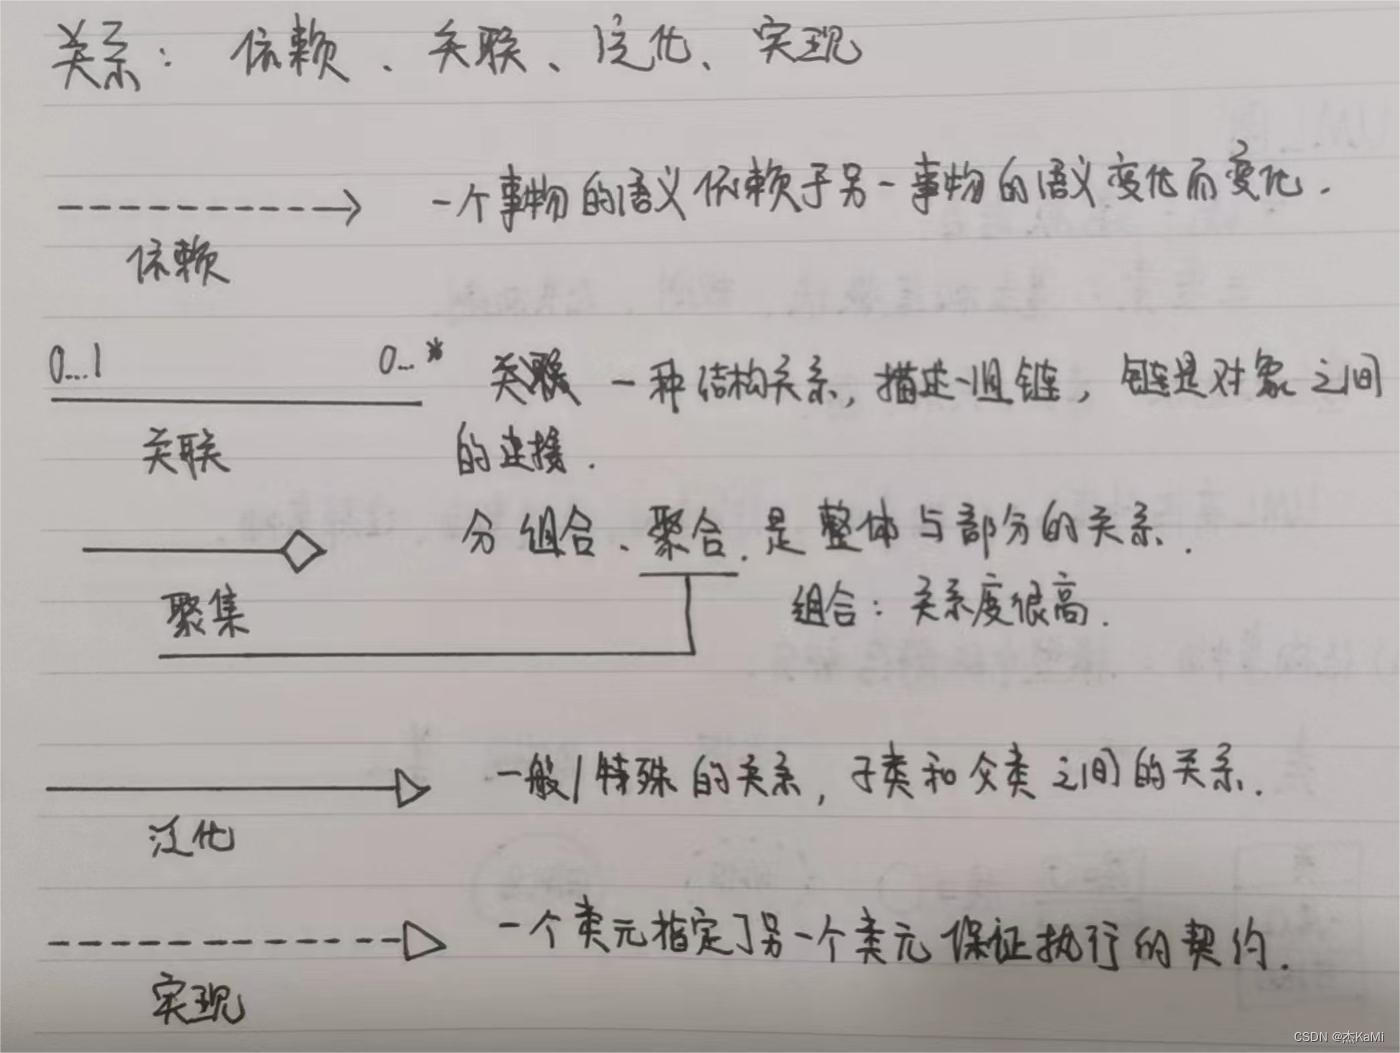 关系：依赖、关联、泛化、实现
一个事物的语义依赖于另一事物的语义变化而变化.
依赖
0...1
0..*
关联 一种结构关系，描述一组链，链是对象之间
的连接.
关联
分组合、聚合.是整体与部分的关系.
聚集
组合：关系度很高.
一般/特殊的关系，子类和父类之间的关系.
泛化
一个类元指定了另一个类元保证执行的契约.
实现
CSDN @杰KaMi